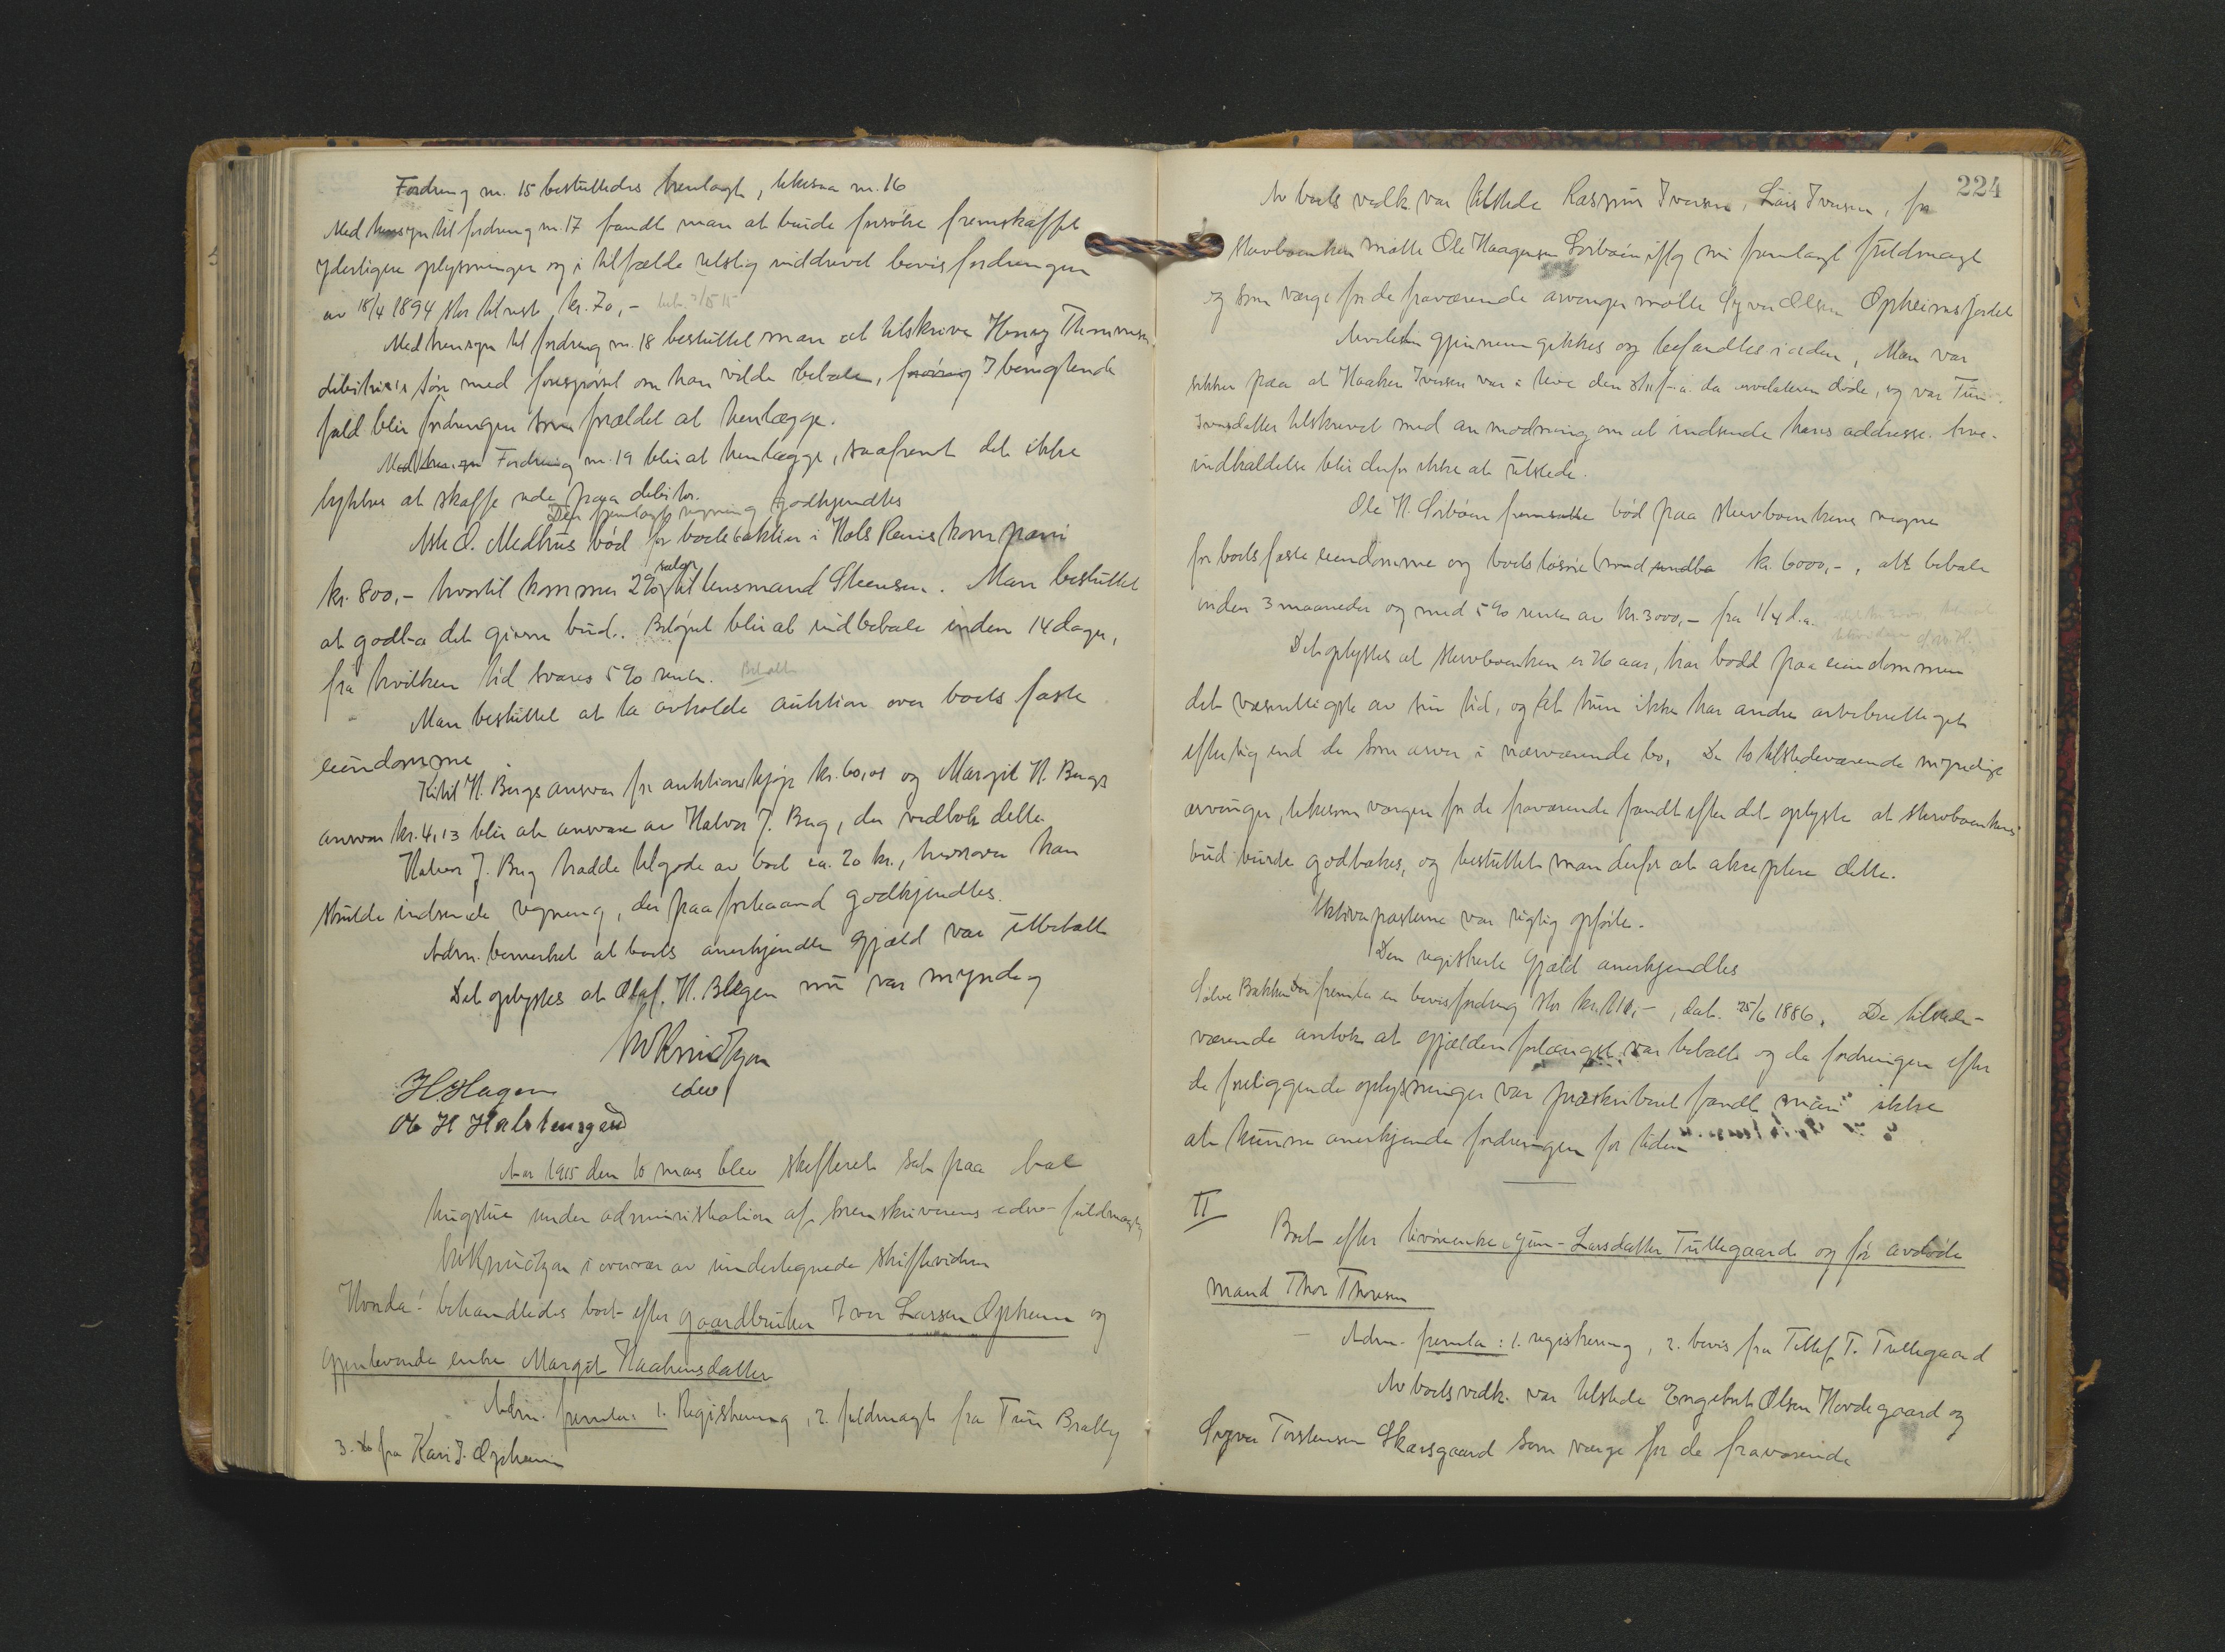 Fordring nr. 15 besluttedes henlagt, likesaa nr. 16
Med hensyn til fordring nr. 17 fandt man at burde forsøke fremskaffet
yderligere oplysninger og i tilfælde retslig inddrevet bevisfordringen
av 18/4 1894 stor tilrest kr. 70,-
Med hensyn til fordring nr. 18 besluttet man at tilskrive Henry Thommesen
debitors søn med forespørsel om han vilde betale, I benegtende
fald blir fordringen som forældet at henlægge.
Med hensyn Fordring nr. 19 blir at henlægge, saafremt det ikke
lykkes at skaffe rede paa debitor.
Den fremlagte regning godkjendtes
Asle O. Medhus bød for boets aktier i Hols Renskompani
kr. 800,- hvortil kommer 2% salær til lensmand Steensen. Man besluttet
at godta det givne bud. Beløpet blir at indbetale inden 14 dage,
fra hvilken tid svares 5% rente. Betalt
Man besluttet at la avholde auktion over boets faste
eiendomme
Kittil H. Bergs ansvar for auktionskjøp kr. 60,01 og Margit H. Bergs
ansvar kr. 4,13 blir at ansvare av Halvor J. Berg, der vedtok dette.
Halvor J. Berg hadde tilgode av boet ca. 20 kr., hvorover han
skulde indsende regning, der paa forhaand godkjendtes.
Adm. bemerket at boets anerkjendte gjæld var utbetalt
Det oplystes at Olaf. H. Blegen nu var myndig
NKnudtzon
edsv
H. Hagen
Ole H Halstensgerd
Aar 1915 den 10 mars blev skifteret sat paa hol
tingstue under administration af sorenskriverens edsv. fuldmægtig
NKnudtzon i overvær av undertegnede skiftevidner
Hvorda: behandledes boet efter gaardbruker Iver Larsen Opheim og
gjenlevende enke Margit Haakensdatter
Adm. fremla: 1. Registrering, 2. fuldmagt fra Turi Bralley
3. do fra Kari I. Opheim
224
Av boets vedk. var tilstede Rasmus Iversen, Lars Iversen, for
stervboenken møtte Ole Haagensen Sorbøen iflg nu fremlagt fuldmagt
og som verge for de fraværende arvinger møtte Syver Olsen Opheimsjordet
Arvelisten gjennemgikkes og befandtes i orden, Man var
sikker paa at Haaken Iversen var i live den f.a. da arvelateren døde, og var Turi
Iversdatter tilskrevet med anmodning om at indsende hans addresse. Arve-
indkaldelse blir derfor ikke at utstede.
Ole H. Sorbøen fremsatte bød paa stervboenkens vegne
for boets faste eiendomme og boets løsøre kr. 6000,-, at betale
inden 3 maaneder og med 5% rente av kr. 3000,- fra 1/4 d.a.
Det oplystes at stervboenken er 76 aar, har bodd paa eiendommen
det væsentligste av sin tid, og at hun ikke har andre arveberettiget
efter sig end de som arver i nærværende bo. De to tilstedeværende myndige
arvinger, likesom vergen for de fraværende fandt efter det oplyste at stervboenkens
bud burde godtakes, og besluttet man derfor at akseptere dette.
Aktivaposterne var rigtig opførte.
Den registrerte gjæld anerkjendtes
Sølve Bakken fremla en bevisfordring stor kr. , dat. 25/6 1886. De tilstede-
værende antok at gjælden forlængst var betalt og da fordringen efter
de foreliggende oplysninger var præskriberet fandt man ikke
at kunne anerkjende fordringen for tiden
II
Boet efter livørenke Gun- Larsdatter Tuftegaard og før avdøde
mand Thor Thoresen
Adm. fremla: 1. registrering, 2. bevis fra Tollef T. Tuftegaard
Av boets vedk. var tilstede Engebret Olsen Hovdegaard og
Syver Torstensen Skarsgaard som verge for de fraværende